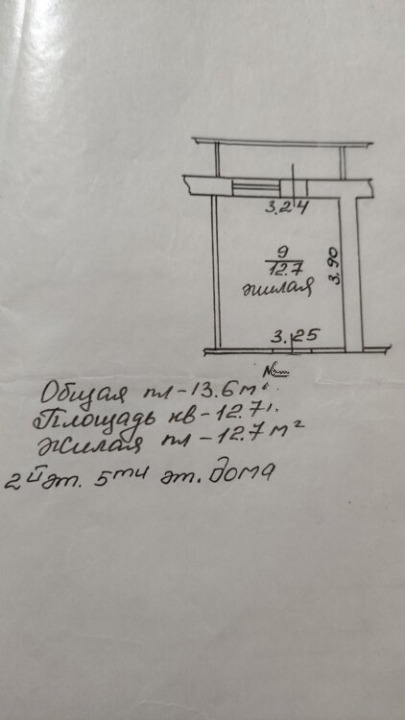 3.24
9
12.7
жилая
3.90
3.25
№
Общая пл-13.6м²
Площадь кв-12.7
Жилая пл-12.7м²
2й эт. 5ти эт. дома